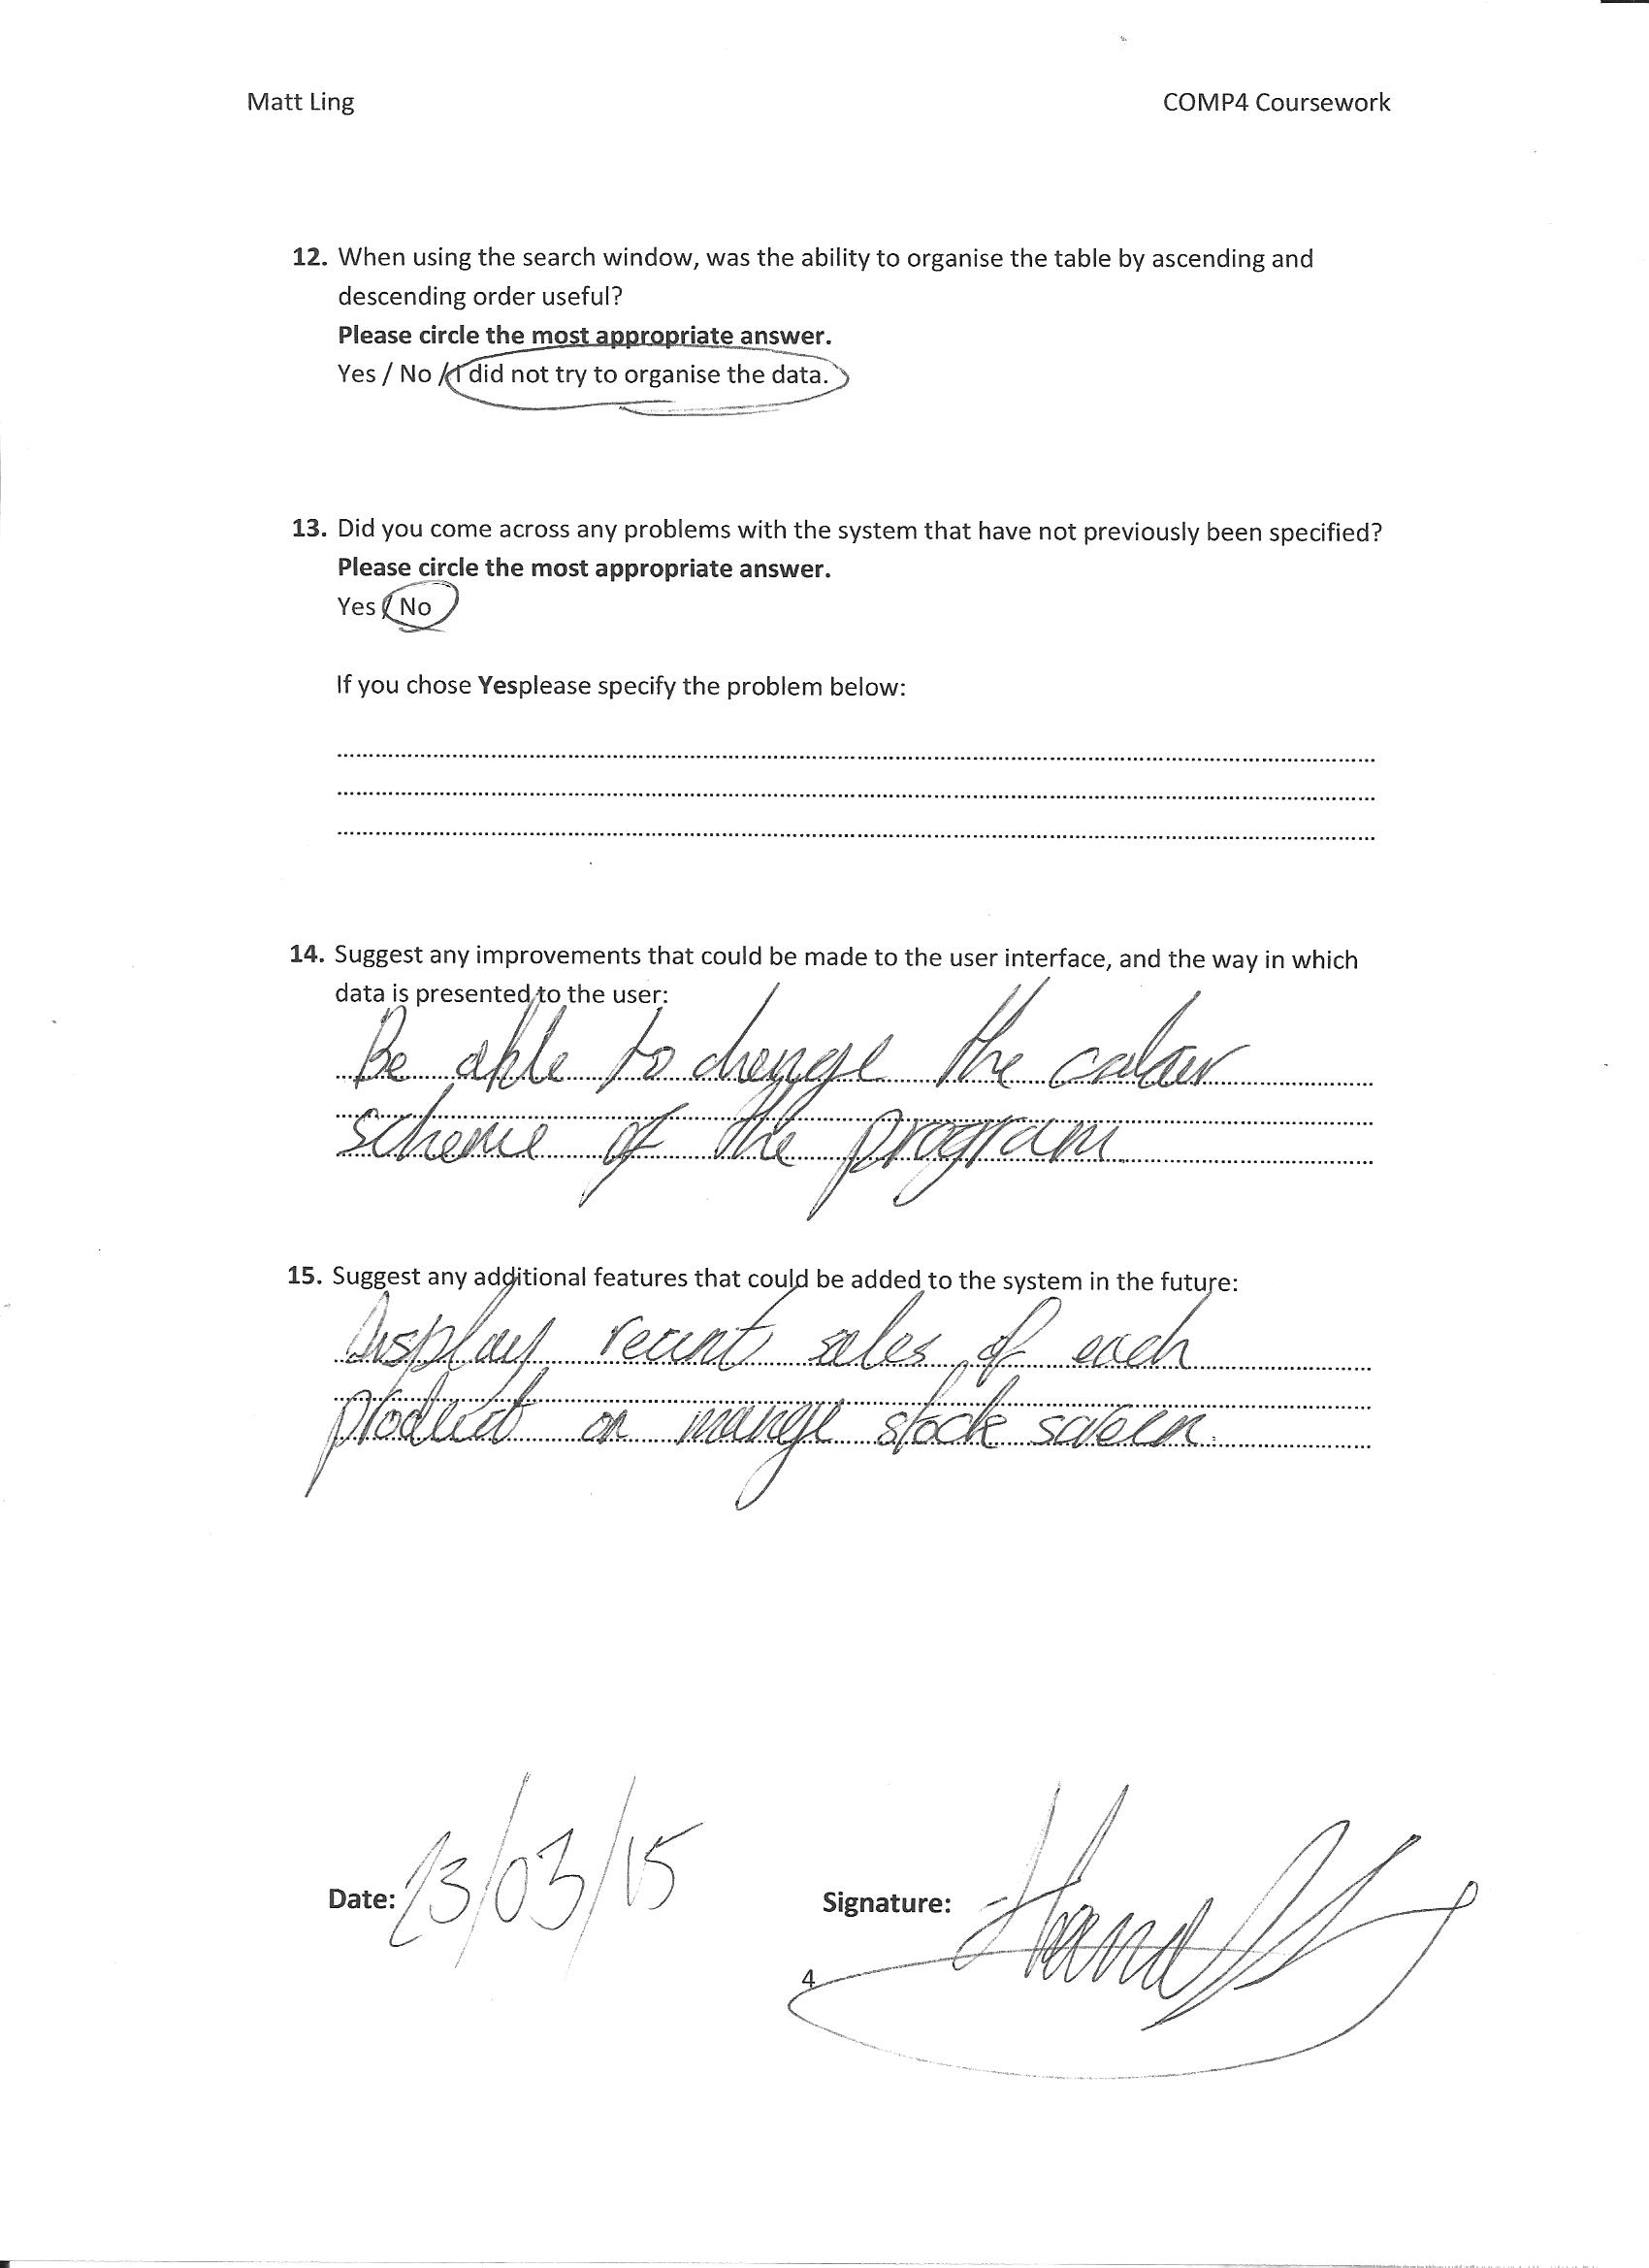 Matt Ling COMP4 Coursework
12. When using the search window, was the ability to organise the table by ascending and
descending order useful?
Please circle the most appropriate answer.
Yes / No / I did not try to organise the data.
13. Did you come across any problems with the system that have not previously been specified?
Please circle the most appropriate answer.
Yes / No
If you chose Yesplease specify the problem below:
14. Suggest any improvements that could be made to the user interface, and the way in which
data is presented to the user:
Be able to change the colour
scheme of the program
15. Suggest any additional features that could be added to the system in the future:
Display recent sales of each
product on mange stock screen.
Date: 23/03/15 Signature:
4